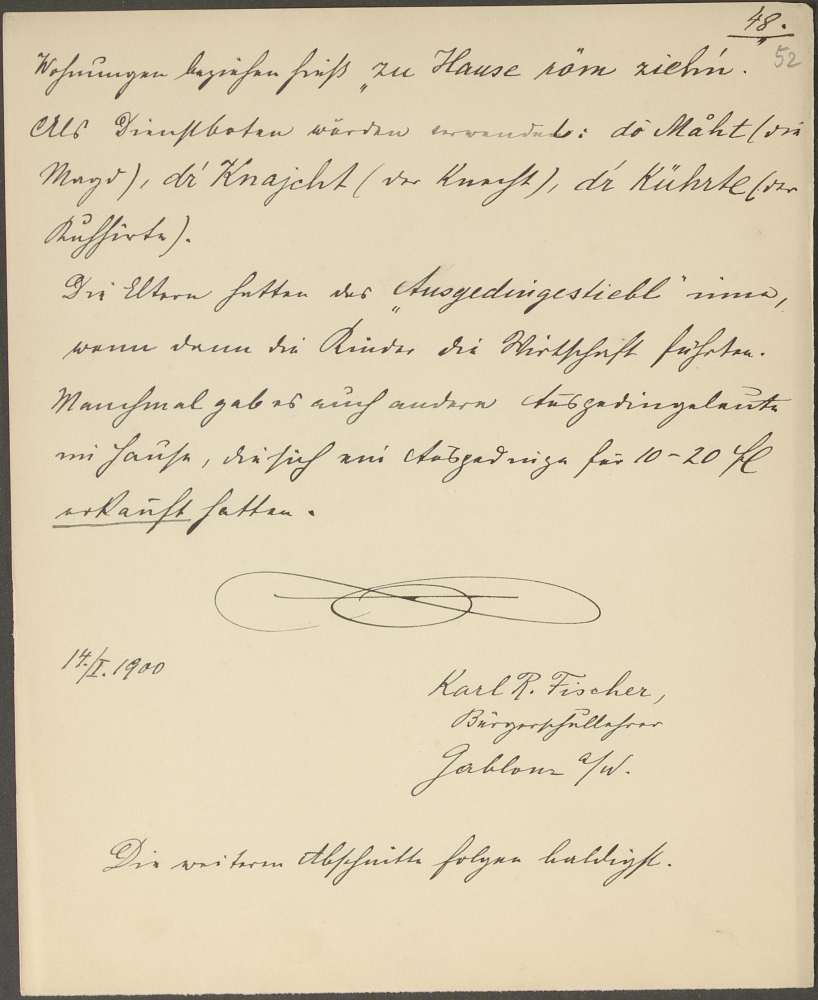 48.
52
Wohnungen beziehen hieß „zu Hause röm ziehn'.
Als Dienstboten wurden verwendet: dö Måht (die
Magd), dr' Knajcht (der Knecht), dr' Kührte (der
Kuhhirte).
Die Eltern hatten das „Ausgedingestiebl" inne,
wenn dann die Kinder die Wirtschaft führten.
Manchmal gab es auch andere Ausgedingeleute
im Hause, die sich ein Ausgedinge für 10-20 fl
erkauft hatten.
14./I. 1900
Karl R. Fischer,
Bürgerschullehrer
Gablonz a/N.
Die weiteren Abschnitte folgen baldigst.